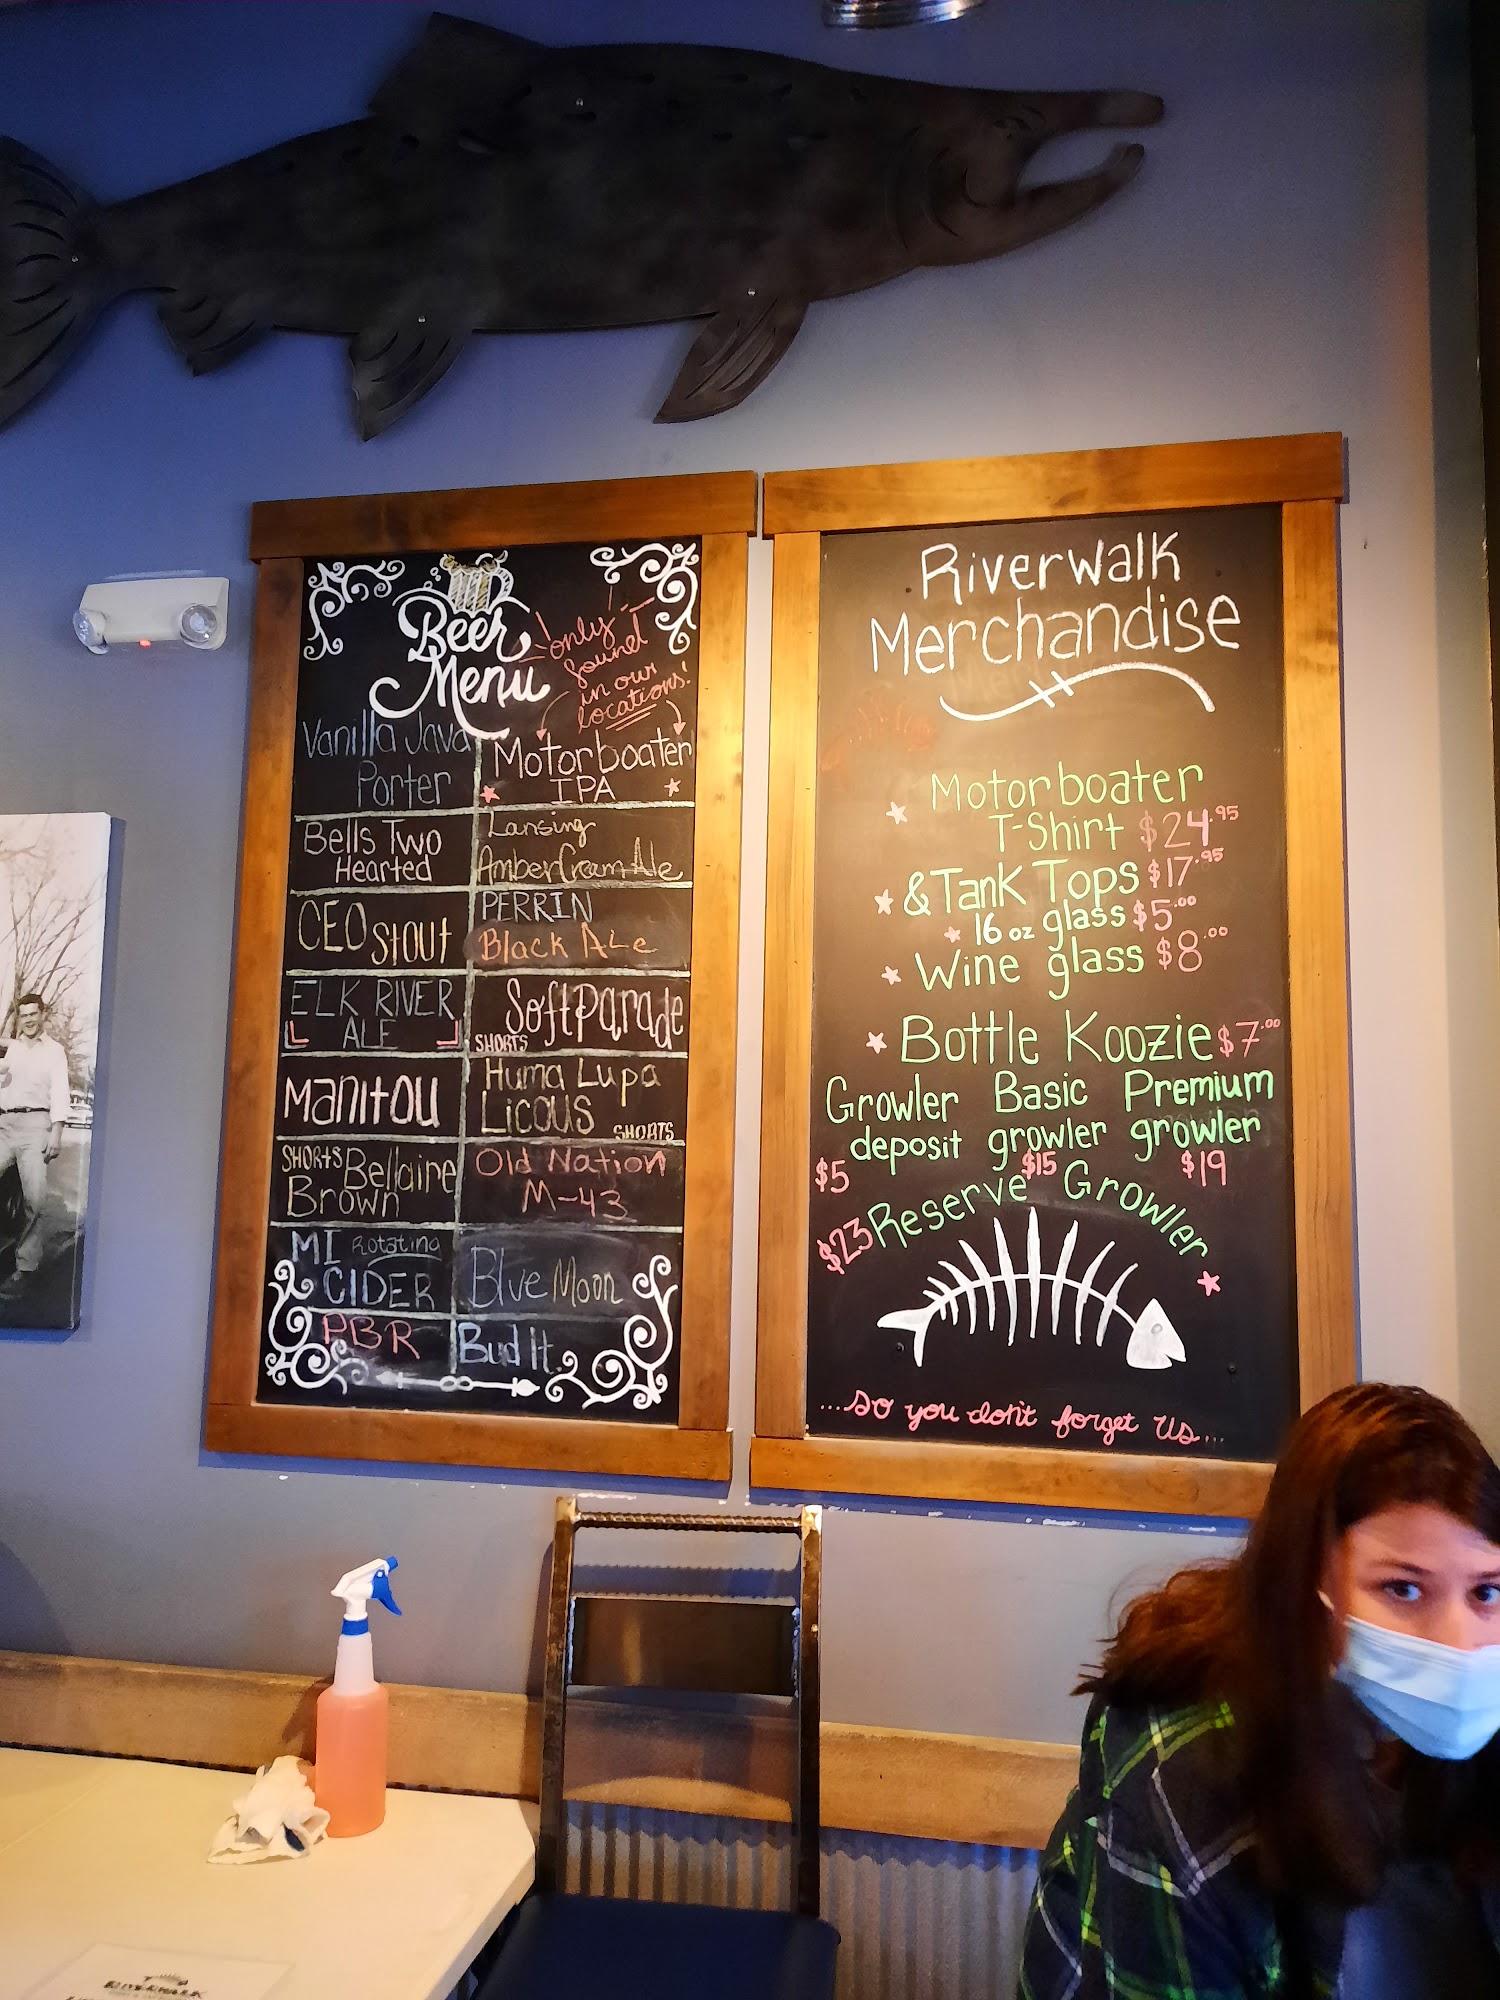 Beer
Menu
only
found
in our
locations!
Vanilla Java
Porter
Motorboater
IPA
Bells Two
Hearted
Lansing
Amber Cream Ale
CEO Stout
PERRIN
Black ALe
ELK RIVER
ALE
SoftParade
SHORTS
Manitou
Huma Lupa
Licous SHORTS
SHORTS Bellaire
Brown
Old Nation
M-43
MI Rotating
CIDER
Blue Moon
PBR
Bud lt.
Riverwalk
Merchandise
Motorboater
T-Shirt $24.95
& Tank Tops $17.95
16 oz glass $5.00
Wine glass $8.00
Bottle Koozie $7.00
Growler Basic Premium
deposit growler growler
$5 $15 $19
$23 Reserve Growler
....so you don't forget us...
RIVERWALK